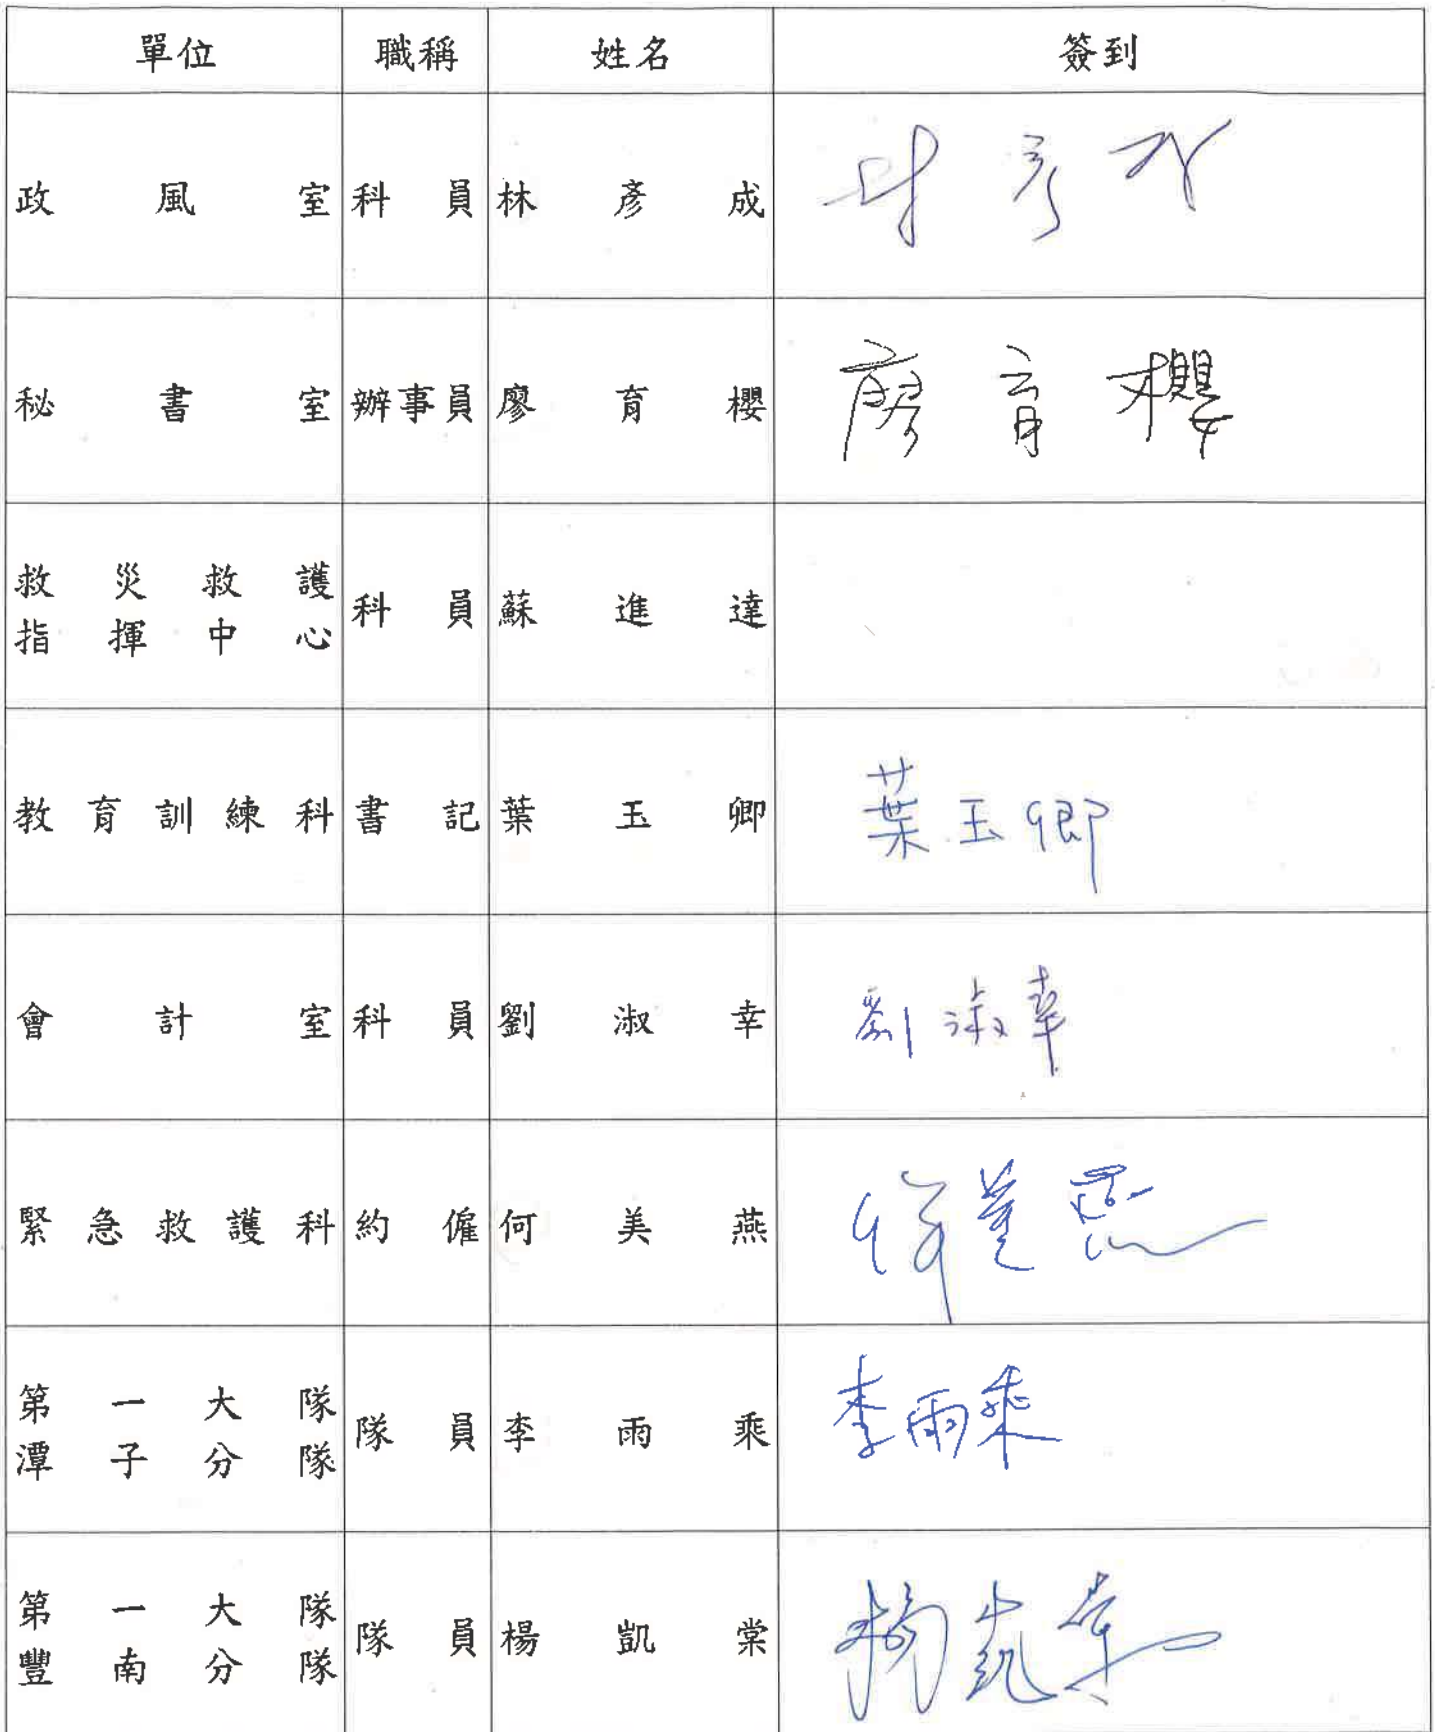 單位 職稱 姓名 簽到
政風室 科員 林彥成 林彥成
秘書室 辦事員 廖育櫻 廖育櫻
救災救護
指揮中心 科員 蘇進達
教育訓練科 書記 葉玉卿 葉玉卿
會計室 科員 劉淑幸 劉淑幸
緊急救護科 約僱 何美燕 何美燕
第一大隊
潭子分隊 隊員 李雨乘 李雨乘
第一大隊
豐南分隊 隊員 楊凱棠 楊凱棠